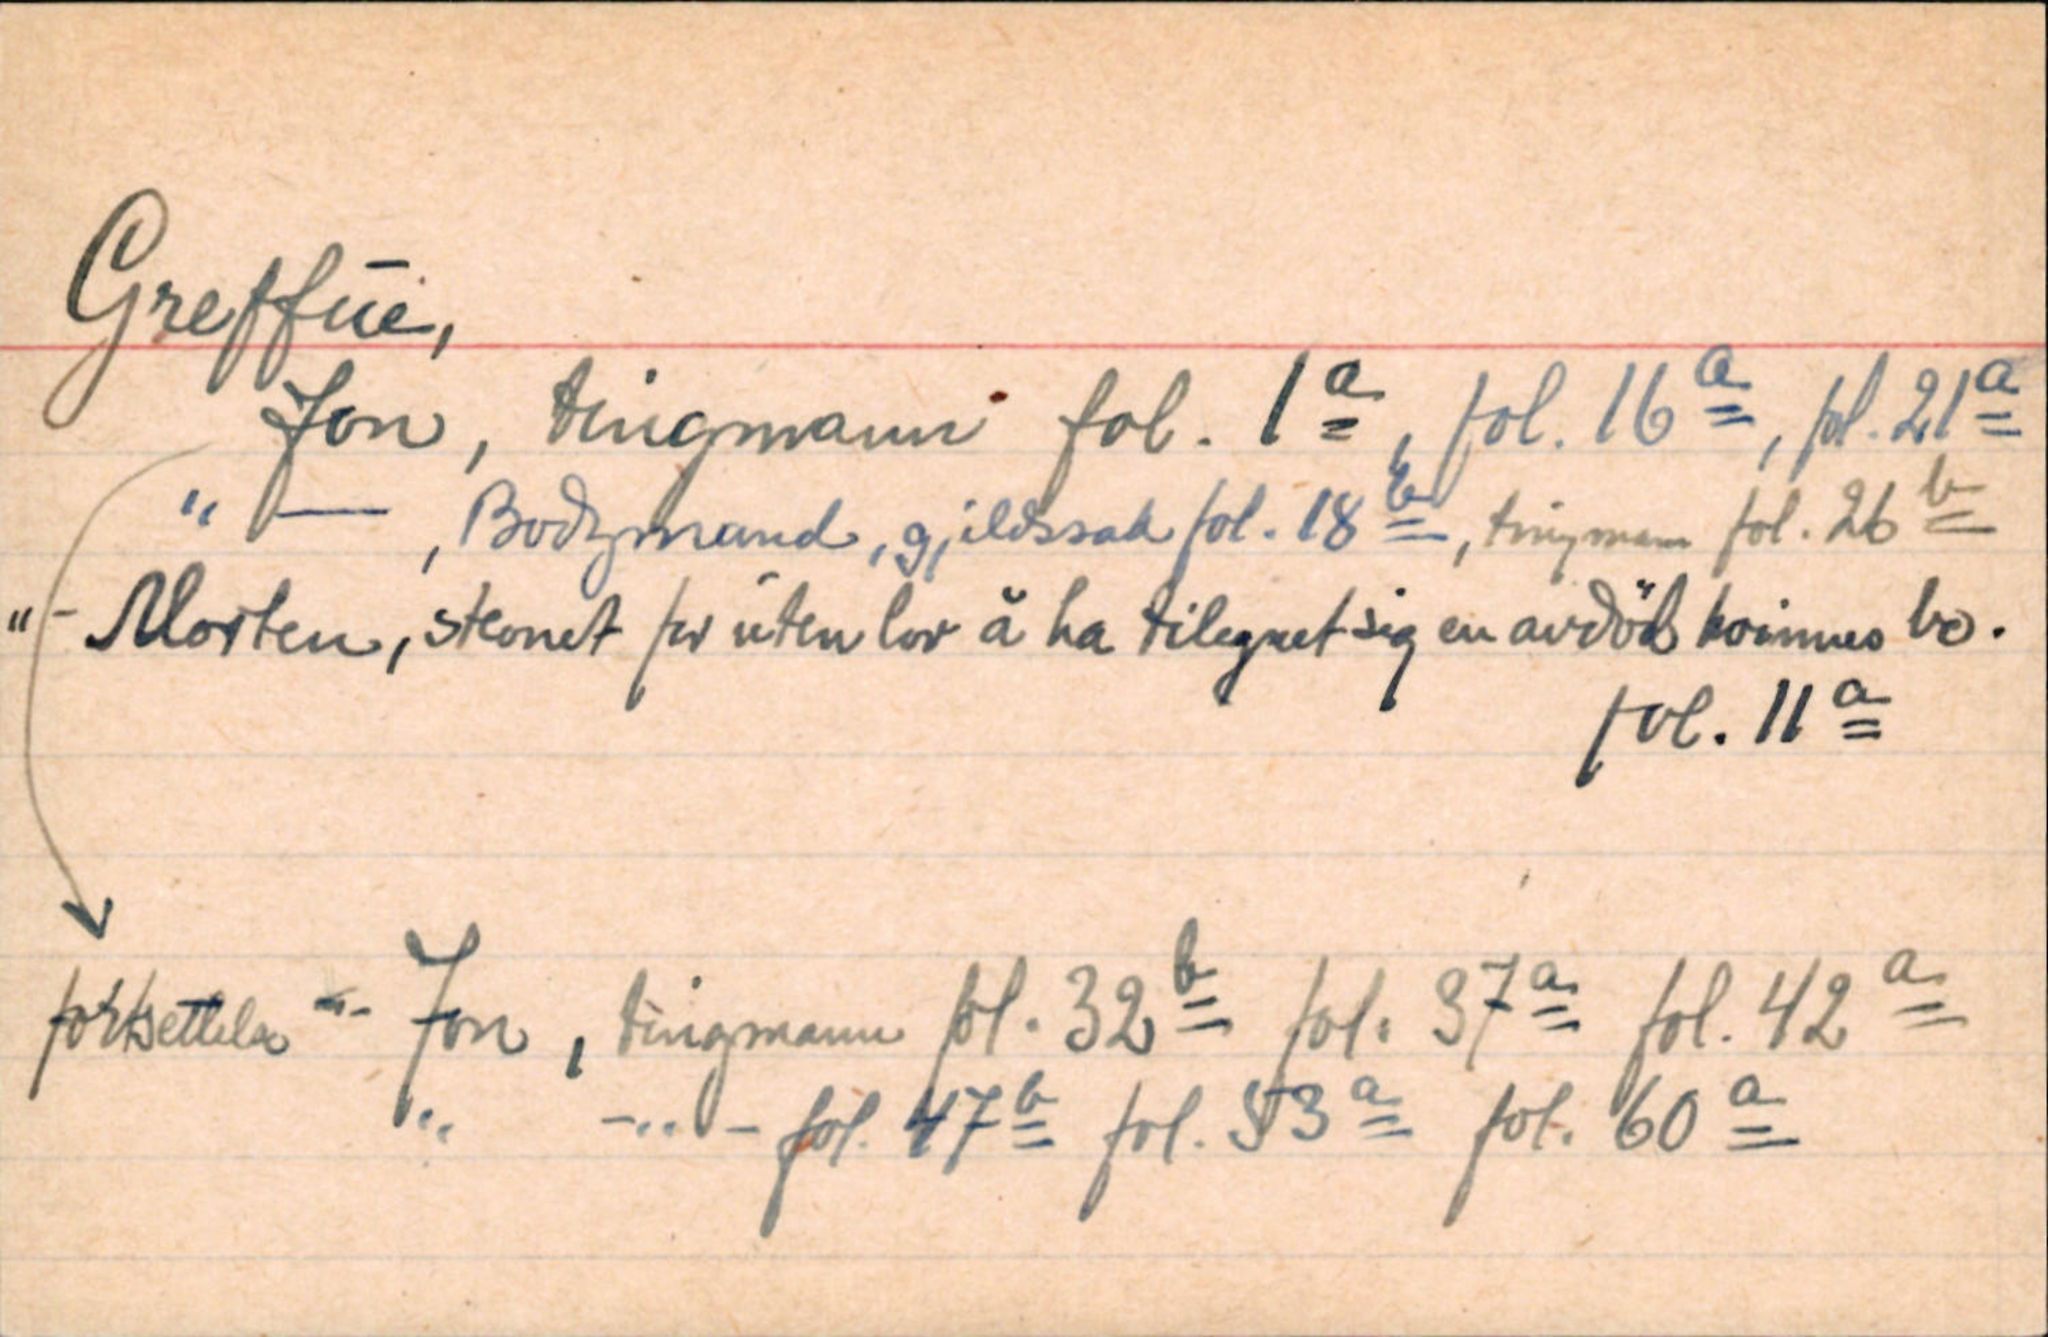 Greffūe,
Jon, tingmann fol. 1a, fol. 16a, fol. 21a
" —, Bodzmand, gjeldssak fol. 18b, tingmann fol. 26b
"- Morten, stevnet for uten lov å ha tilegnet sig en avdöd kvinnes bo.
fol. 11a
fortsettelse -"- Jon, tingmann fol. 32b fol. 37a fol. 42a
" -"- fol. 47b fol. 53a fol. 60a